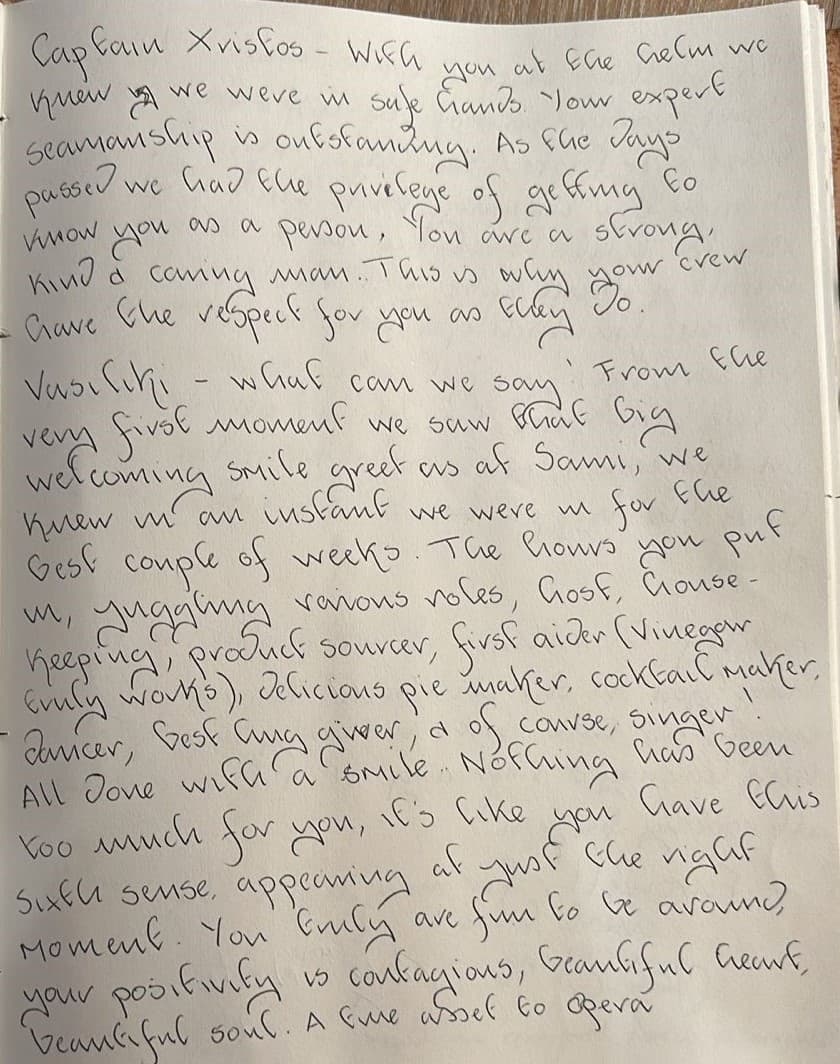 Captain Xristos - With you at the helm we
knew we were in safe hands. Your expert
seamanship is outstanding. As the days
passed we had the privilege of getting to
know you as a person, You are a strong,
kind & caring man.. This is why your crew
have the respect for you as they do.
Vasiliki - what can we say! From the
very first moment we saw that big
welcoming smile greet us at Sami, we
knew in an instant we were in for the
best couple of weeks. The hours you put
in, juggling various roles, host, house-
keeping, product sourcer, first aider (Vinegar
truly works), delicious pie maker, cocktail maker,
dancer, best hug giver, & of course, singer!
All done with a smile.. Nothing has been
too much for you, it's like you have this
sixth sense, appearing at just the right
moment. You truly are fun to be around,
your positivity is contagious, beautiful heart,
beautiful soul. A true asset to Opera